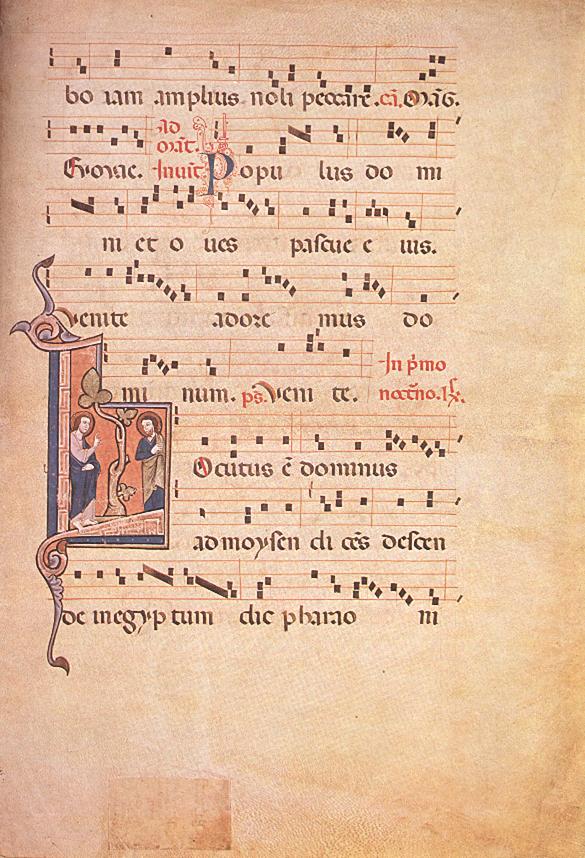 bo iam amplius noli peccare. cā. Mag̃.
Evovae. ad orāt. Invit̃. Popu lus do mi
ni et o ues pascue e ius.
Venite adore mus do
mi num. ps̃. Veni te. In p̃mo noct̃no. ℟.
Ocutus ē dominus
ad moysen di cẽs descen
de in egyp tum dic pharao ni